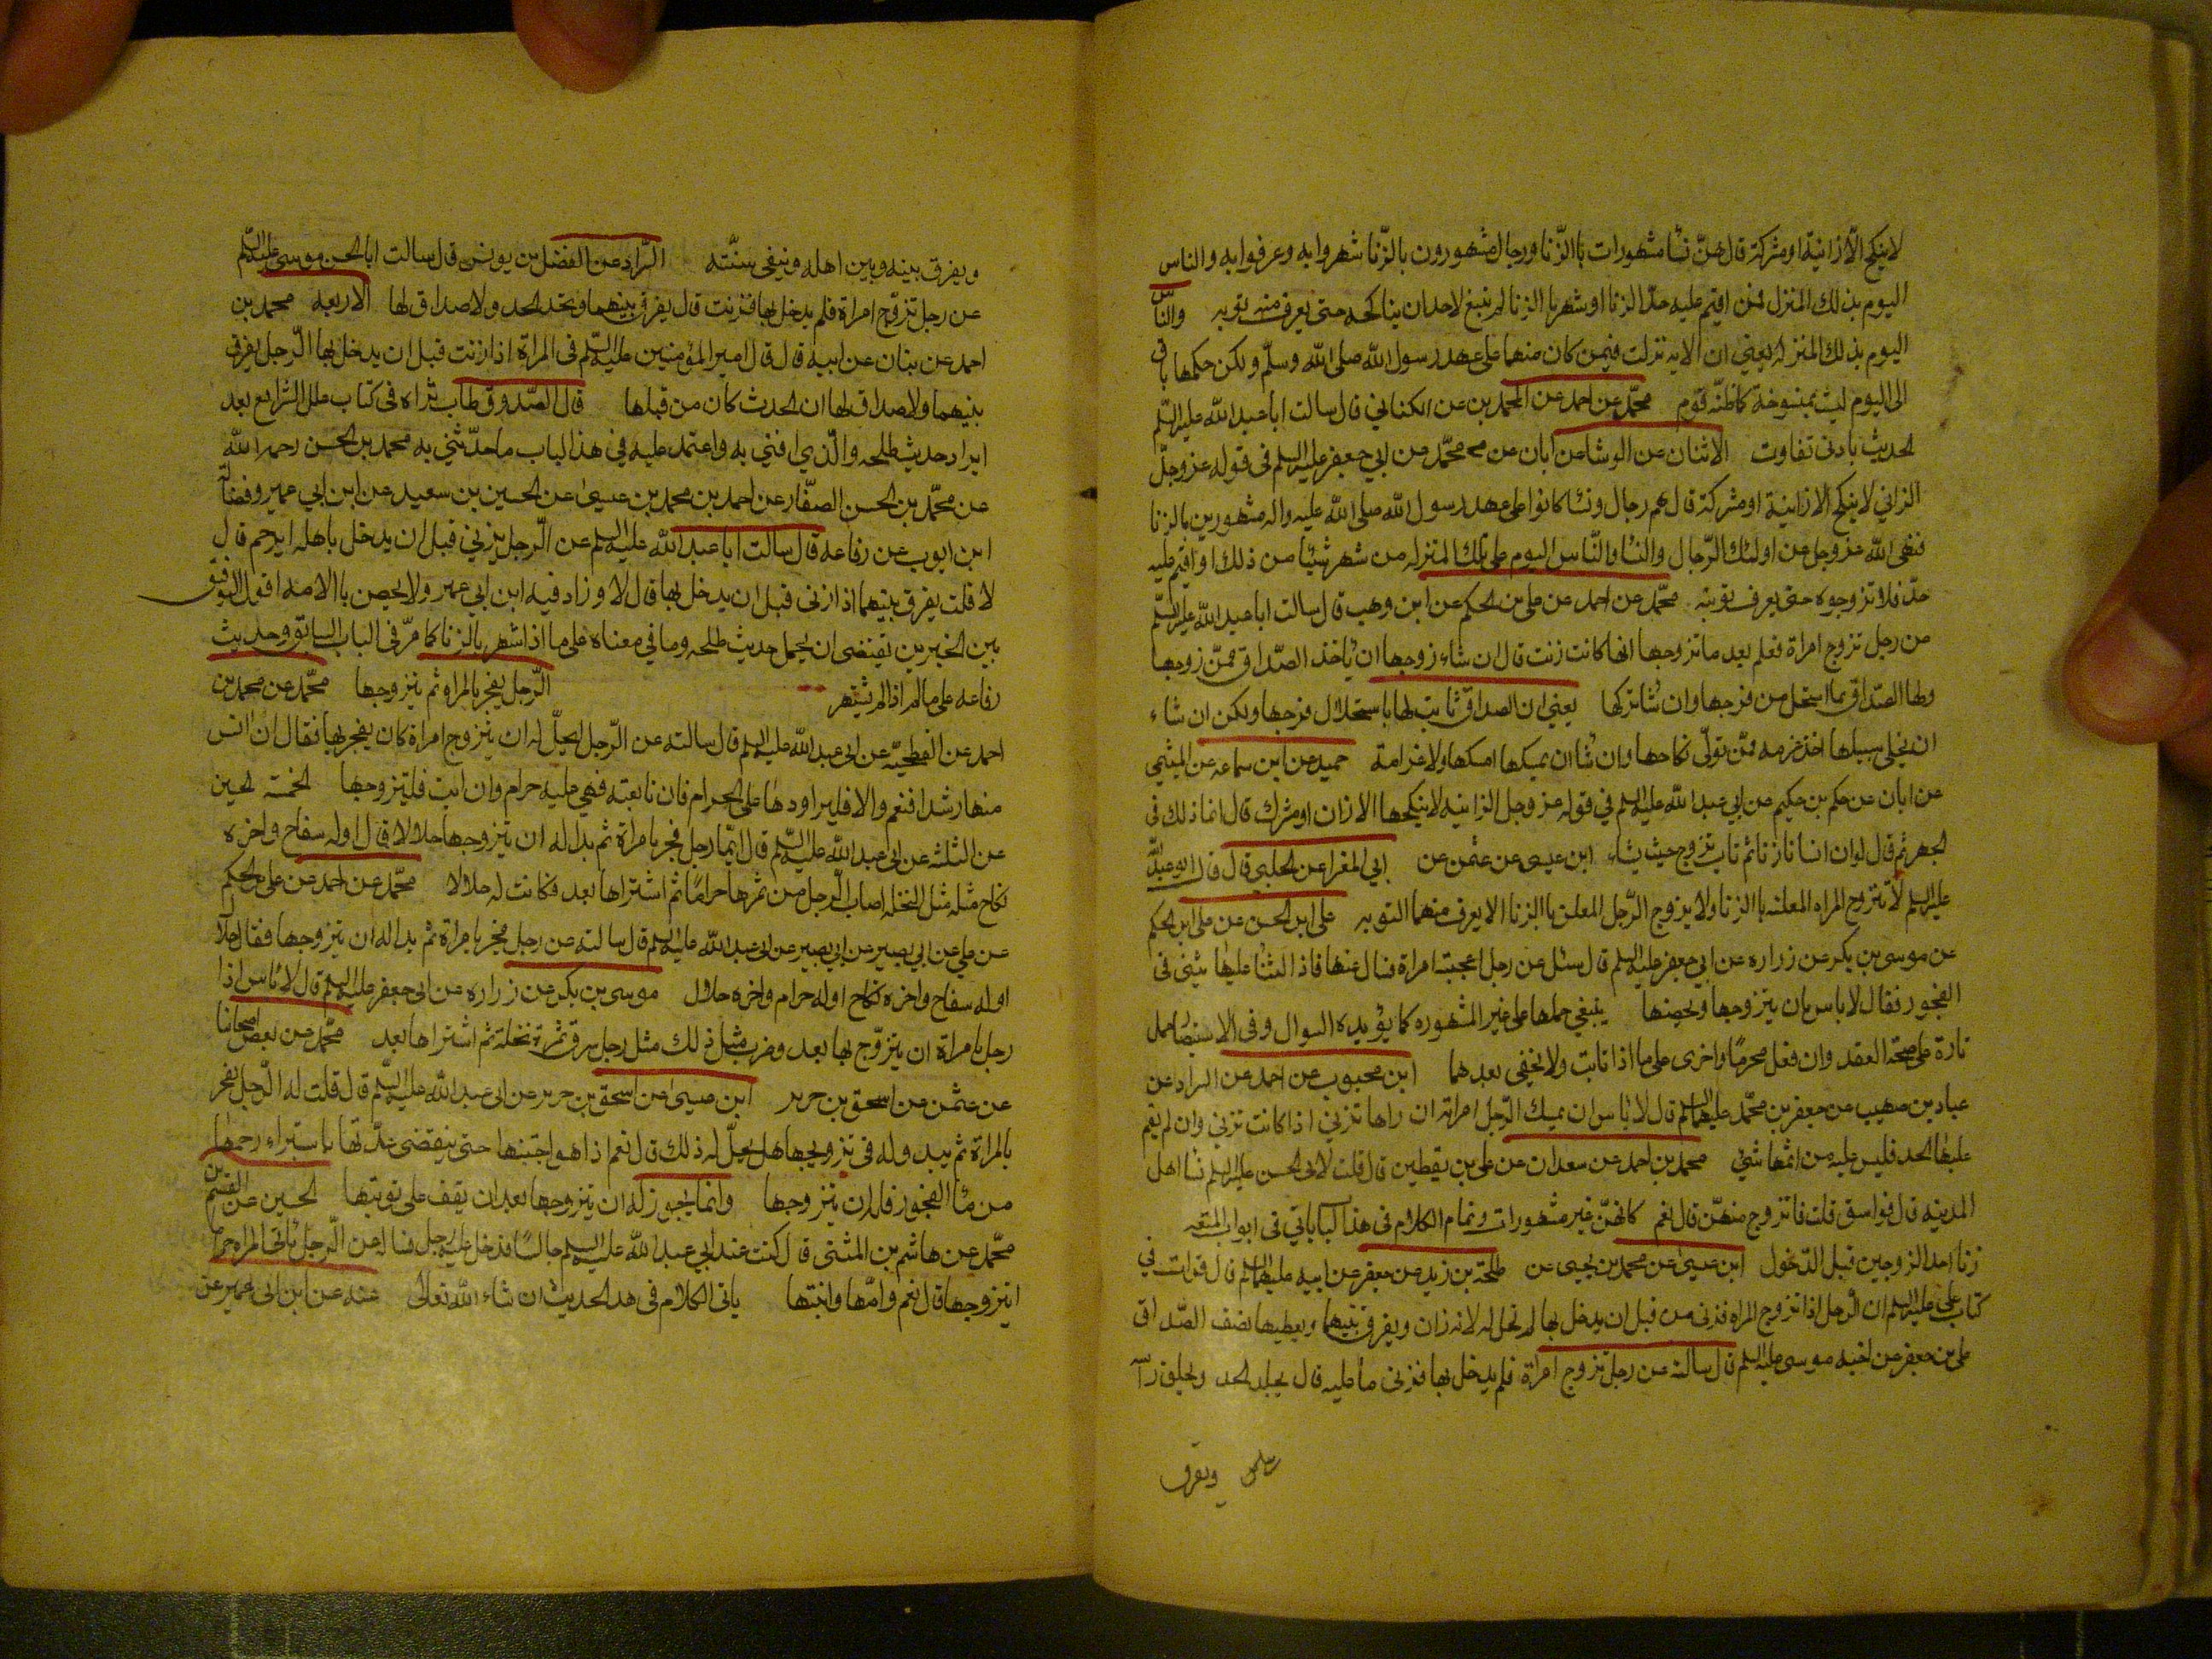 لاينكح الّا زانية او مشركة قال هنّ نسا مشهورات باالزّنا ورجال مشهورون بالزّنا شهروا به وعرفوا به والناس
اليوم بذلك المنزل فمن اقيم عليه حدّ الزنا او شهر با الزنا لم ينبغ لاحد ان يناكحه حتى يعرف منه توبه والناس
اليوم بذلك المنزله يعني ان الايه نزلت فيمن كان منهما على عهد رسول الله صلى الله وسلّم ولكن حكمها باق
الى اليوم ليت بمنسوخة كما ظنّه قوم محمّد عن احمد عن المحمد بن عن الكناني قال سالت ابا عبد الله عليه السّلم
الحديث بادنى تفاوت الاثنان عن الوشا عن ابان عن محمّد عن ابي جعفر عليه السلم فى قوله عز وجلّ
الزاني لاينكح الا زانية او مشركة قال هم رجال ونسا كانوا على عهد رسول الله صلى الله عليه واله مشهورين بالزنا
فنهى الله عز وجل عن اولئك الرّجال والنسا والنّاس اليوم على تلك المنزله من شهر شيئا من ذلك او اقيم عليه
حدّ فلا تزوجوه حتى يعرف توبته محمّد عن احمد عن على بن الحكم عن ابن وهب قال سالت ابا عبد الله عليه السلم
عن رجل تزوج امراة فعلم بعد ما تزوجها انها كانت زنت قال ان شاء زوجها ان ياخذ الصّداق ممّن زوجها
ولها الصّداق بما استحل من فرجها وان شا تركها يعني ان الصداق ثابت لها باستحلال فرجها ولكن ان شاء
ان يخلى سبيلها اخذ غرمه ممّن تولّى نكاحها وان شا ان يمسكها امسكها ولا غرامة حميد عن ابن سماعه عن الميثمي
عن ابان عن حكم بن حكيم عن ابي عبد الله عليه السلم في قوله عز وجل الزانيه لاينكحها الا زان او مشرك قال انما ذلك فى
الجهر ثم قال لو ان انسانا زنا ثم تاب تزوج حيث شاء ابن عيسى عن عثمن عن ابي المغرا عن الحلبي قال قال ابو عبد الله
عليه السلم لا تتزوج المراه المعلنه باالزنا ولا يزوج الرّجل المعلن باالزنا الا يعرف منهما التوبه على ابن الحسن عن على ابن الحكم
عن موسى بن بكر عن زراره عن ابي جعفر عليه السلم قال سئل عن رجل اعجبته امراة فسال عنها فاذا الثنا عليها يثنى فى
الفجور فقال لاباس بان يتزوجها ويحصنها ينبغي حملها على غير المشهوره كما يؤيده السوال وفى الاستبصار حمل
تارة على صحّة العقد وان فعل محرمًا واخرى على ما اذا تابت ولا يخفى بعدهما ابن محبوب عن احمد عن السراد عن
عباد بن صهيب عن جعفر بن محمّد عليهما السلم قال لا باس ان يمسك الرّجل امراته ان راها تزني اذا كانت تزني وان لم يقم
عليها الحد فليس عليه من اثمها شي محمد بن احمد عن سعدان عن على بن يقطين قال قلت لابى الحسن عليه السلم نسا اهل
المدينه قال فواسق قلت فاتزوج منهنّ قال نعم كانهنّ غير مشهورات وتمام الكلام فى هذا الباب ياتي فى ابواب المتعه
زنا احد الزوجين قبل الدّخول ابن عيسى عن محمد بن يحيى عن طلحة بن زيد عن جعفر عن ابيه عليهما السلم قال قرات في
كتاب على عليه السلم ان الرّجل اذا تزوج المراه فزنى من قبل ان يدخل بها لم تحل له لانه زان ويفرق بينهما ويعطيها نصف الصّداق
على بن جعفر عن اخيه موسى عليه السلم قال سالته عن رجل تزوج امراة فلم يدخل بها فزنى ما عليه قال يجلد الحد ويحلق راسه
ويفرق
ويفرق بينه وبين اهله وينفى سنّته السّراد عن الفضل بن يونس قال سالت ابا الحسن موسى عليه السّلم
عن رجل تزوّج امراة فلم يدخل بها فزنت قال يفرق بينهما وتحد الحد ولا صداق لها الاربعه محمد بن
احمد عن بنان عن ابيه قال قال امير المؤمنين عليه السّلم فى المراة اذا زنت قبل ان يدخل بها الرّجل يفرق
بينهما ولا صداق لها ان الحدث كان من قبلها قال الصّدوق طاب ثراه فى كتاب علل الشرايع بعد
ايراد حديث طلحه والّذي افتي به واعتمد عليه في هذا الباب ما حدّثني به محمد بن الحسن رحمه الله
عن محمّد بن الحسن الصفّار عن احمد بن محمد بن عيسى عن الحسين بن سعيد عن ابن ابي عمير وفضالة
ابن ايوب عن رفاعه قال سالت ابا عبد الله عليه السلم عن الرّجل يزني قبل ان يدخل باهله ايرجم قال
لا قلت يفرق بينهما اذا زنى قبل ان يدخل بها قال لا وزاد فيه ابن ابي عمير ولا يحصن باالامه اقول التوفيق
بين الخبرين يقتضى ان يحمل حديث طلحه وما في معناه على ما اذا اشهر بالزنا كما مرّ فى الباب السابق وحديث
رفاعه على ما لم اذا لم يشتهر الرّجل يفجر بالمراه ثم يتزوجها محمّد عن محمد بن
احمد عن الفطحيّه عن ابى عبد الله عليه السلم قال سالته عن الرّجل ايحلّ له ان يتزوج امراة كان يفجر بها فقال ان انس
منها رشدا فنعم والا فليراودها على الحرام فان تابعته فهى عليه حرام وان ابت فليتزوجها الخمسة لحين
عن الثلثه عن ابى عبد الله عليه السّلم قال ايّما رجل فجر بامراة ثم بدا له ان يتزوجها حلالا قال اوله سفاح واخره
نكاح مثله مثل النخله اصاب الرّجل من ثمرها حرامًا ثم اشتراها بعد فكانت له حلالا محمّد عن احمد عن على بن الحكم
عن على عن ابي بصير عن ابي بصير عن ابى عبد الله عليه السلم قال سالته عن رجل فجر بامراة ثم بدا له ان يتزوجها فقال حلال
اوله سفاح واخره نكاح اوله حرام واخره حلال موسى بن بكر عن زراره عن ابى جعفر عليه السلم قال لا باس اذا
رجل بامراة ان يتزوّج بها بعد وضرب مثل ذلك مثل رجل سرق ثمرة نخلة ثم اشتراها بعد محمّد عن بعض اصحابنا
عن عثمن عن اسحق بن حرير ابن عيسى عن اسحق بن حرير عن ابى عبد الله عليه السّلم قال قلت له الرّجل يفجر
بالمراة ثم يبدو له فى تزويجها هل يحلّ له ذلك قال نعم اذا هو اجتنبها حتى ينقضى عدّتها باستبراء رحمها
من ماء الفجور فله ان يتزوجها وانما يجوز له ان يتزوجها بعد ان يقف على توبتها الحسين عن القسم بن
محمّد عن هاشم بن المثنى قال كنت عند ابي عبد الله عليه السلم جالسًا فدخل عليه رجل فساله عن الرّجل ياتى المراه حراما
ايتزوجها قال نعم وامّها وابنتها ياتى الكلام فى هذ الحديث ان شاء الله تعالى عنه عن ابن ابى عمير عن